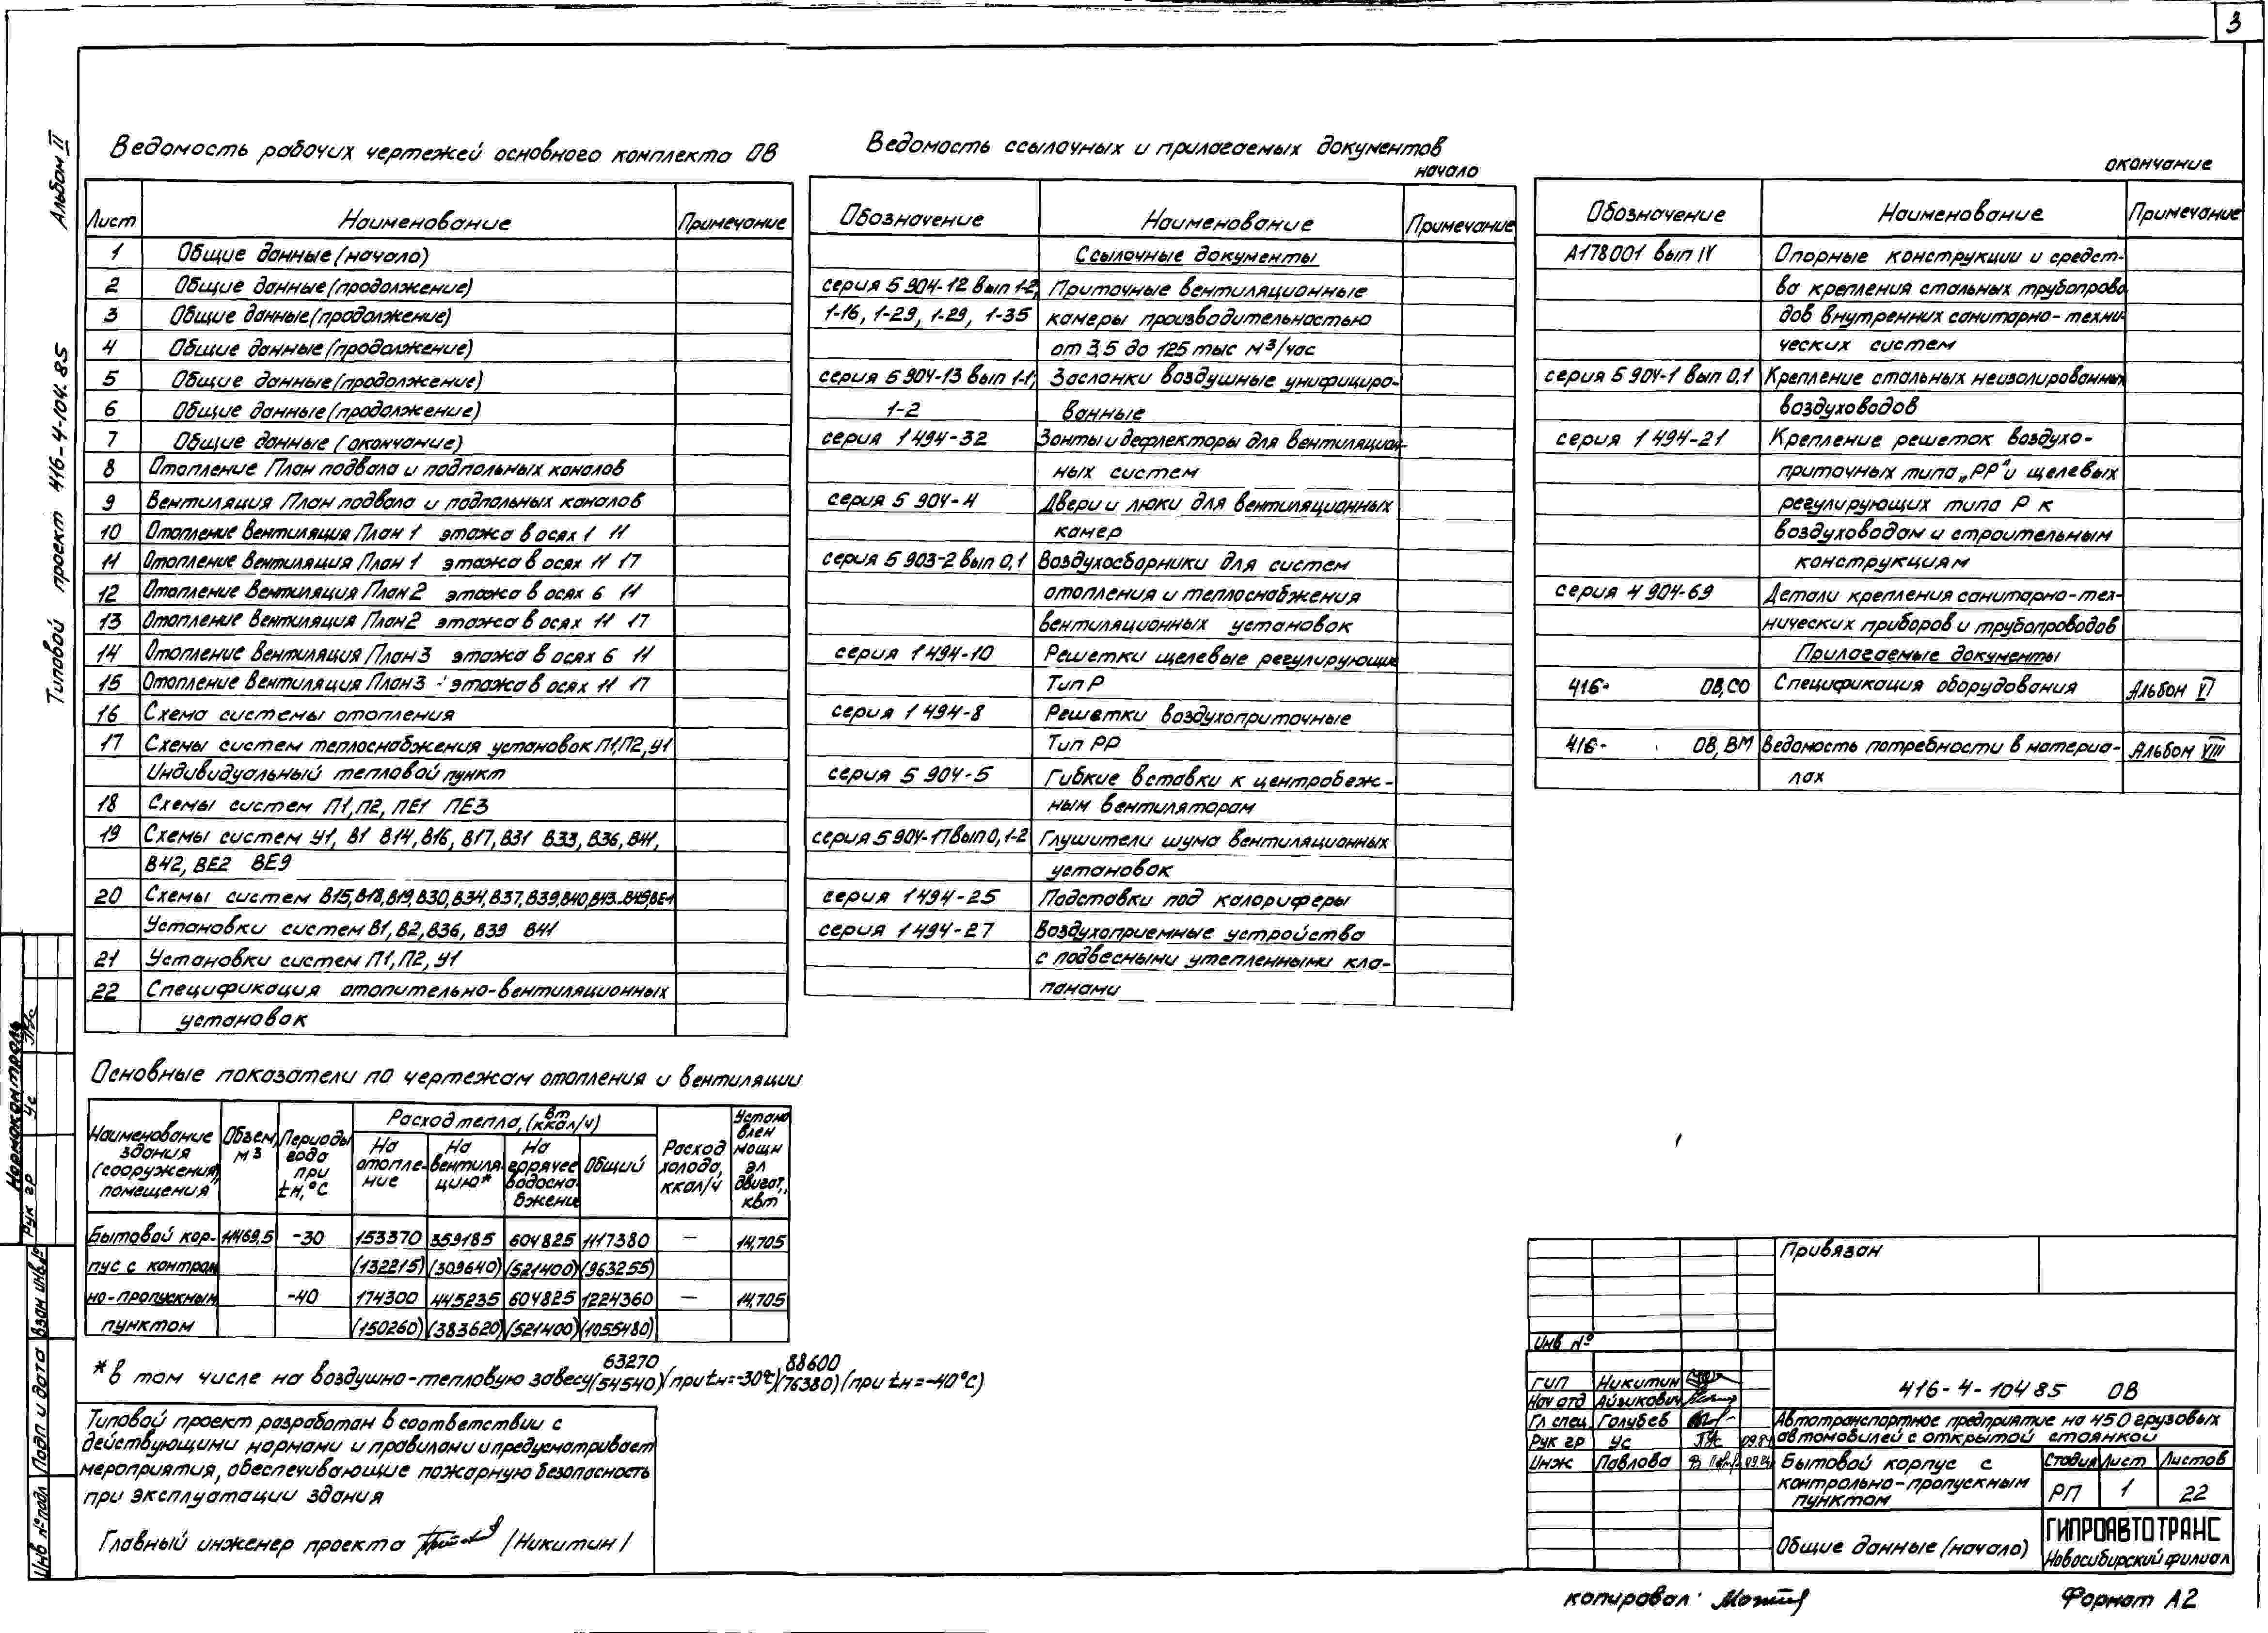 3
Альбом II
Типовой проект 416-4-104.85
Ведомость рабочих чертежей основного комплекта ОВ
Лист Наименование Примечание
1 Общие данные (начало)
2 Общие данные (продолжение)
3 Общие данные (продолжение)
4 Общие данные (продолжение)
5 Общие данные (продолжение)
6 Общие данные (продолжение)
7 Общие данные (окончание)
8 Отопление План подвала и подпольных каналов
9 Вентиляция План подвала и подпольных каналов
10 Отопление Вентиляция План 1 этажа в осях 1 11
11 Отопление Вентиляция План 1 этажа в осях 11 17
12 Отопление Вентиляция План 2 этажа в осях 6 11
13 Отопление Вентиляция План 2 этажа в осях 11 17
14 Отопление Вентиляция План 3 этажа в осях 6 11
15 Отопление Вентиляция План 3 этажа в осях 11 17
16 Схема системы отопления
17 Схемы систем теплоснабжения установок П1, П2, У1
Индивидуальный тепловой пункт
18 Схемы систем П1, П2, ПЕ1 ПЕ3
19 Схемы систем У1, В1 В14, В16, В17, В31 В33, В36, В41,
В42, ВЕ2 ВЕ9
20 Схемы систем В15, В18, В19, В30, В34, В37, В39, В40, В43...В49, ВЕ1
Установки систем В1, В2, В36, В39 В41
21 Установки систем П1, П2, У1
22 Спецификация отопительно-вентиляционных
установок
Ведомость ссылочных и прилагаемых документов
начало
Обозначение Наименование Примечание
Ссылочные документы
серия 5 904-12 вып 1-2, Приточные вентиляционные
1-16, 1-29, 1-29, 1-35 камеры производительностью
от 3,5 до 125 тыс м3/час
серия 5 904-13 вып 1-1, Заслонки воздушные унифициро-
1-2 ванные
серия 1 494-32 Зонты и дефлекторы для вентиляцион-
ных систем
серия 5 904-4 Двери и люки для вентиляционных
камер
серия 5 903-2 вып 0,1 Воздухосборники для систем
отопления и теплоснабжения
вентиляционных установок
серия 1 494-10 Решетки щелевые регулирующие
Тип Р
серия 1 494-8 Решетки воздухоприточные
Тип РР
серия 5 904-5 Гибкие вставки к центробеж-
ным вентиляторам
серия 5 904-17 вып 0, 1-2 Глушители шума вентиляционных
установок
серия 1 494-25 Подставки под калориферы
серия 1 494-27 Воздухоприемные устройства
с подвесными утепленными кла-
панами
окончание
Обозначение Наименование Примечание
А178001 вып IV Опорные конструкции и средст-
ва крепления стальных трубопрово
дов внутренних санитарно-техни-
ческих систем
серия 5 904-1 вып 0,1 Крепление стальных неизолированных
воздуховодов
серия 1 494-21 Крепление решеток воздухо-
приточных типа „РР" и щелевых
регулирующих типа Р к
воздуховодам и строительным
конструкциям
серия 4 904-69 Детали крепления санитарно-тех-
нических приборов и трубопроводов
Прилагаемые документы
416- ОВ, СО Спецификация оборудования Альбом VI
416- ОВ, ВМ Ведомость потребности в материа- Альбом VIII
лах
Основные показатели по чертежам отопления и вентиляции
Наименование здания (сооружения), помещения
Объем, м3
Периоды года при tн, °С
Расход тепла, (Вт (ккал/ч)
На отопле-ние
На вентиля-цию*
На горячее водосна-бжение
Общий
Расход холода, ккал/ч
Установлен мощн эл двигат., квт
Бытовой кор- 14469,5 -30 153370 359185 604825 1117380 — 14,705
пус с контроль (132215) (309640) (521400) (963255)
но-пропускным -40 174300 445235 604825 1224360 — 14,705
пунктом (150260) (383620) (521400) (1055480)
63270 88600
* в том числе на воздушно-тепловую завесу (54540) (при tн=-30°С) (76380) (при tн=-40°С)
Типовой проект разработан в соответствии с
действующими нормами и правилами и предусматривает
мероприятия, обеспечивающие пожарную безопасность
при эксплуатации здания
Главный инженер проекта /Никитин/
Нормоконтроль
Рук гр Ус
Взам инв №
Подп и дата
Инв № подл
Привязан
Инв №
ГИП Никитин
Нач отд Айзикович
Гл спец Голубев
Рук гр Ус 09.84
Инж Павлова 09.84
416-4-104 85 ОВ
Автотранспортное предприятие на 450 грузовых
автомобилей с открытой стоянкой
Бытовой корпус с
контрольно-пропускным
пунктом
Стадия Лист Листов
РП 1 22
Общие данные (начало)
ГИПРОАВТОТРАНС
Новосибирский филиал
копировал:
Формат А2